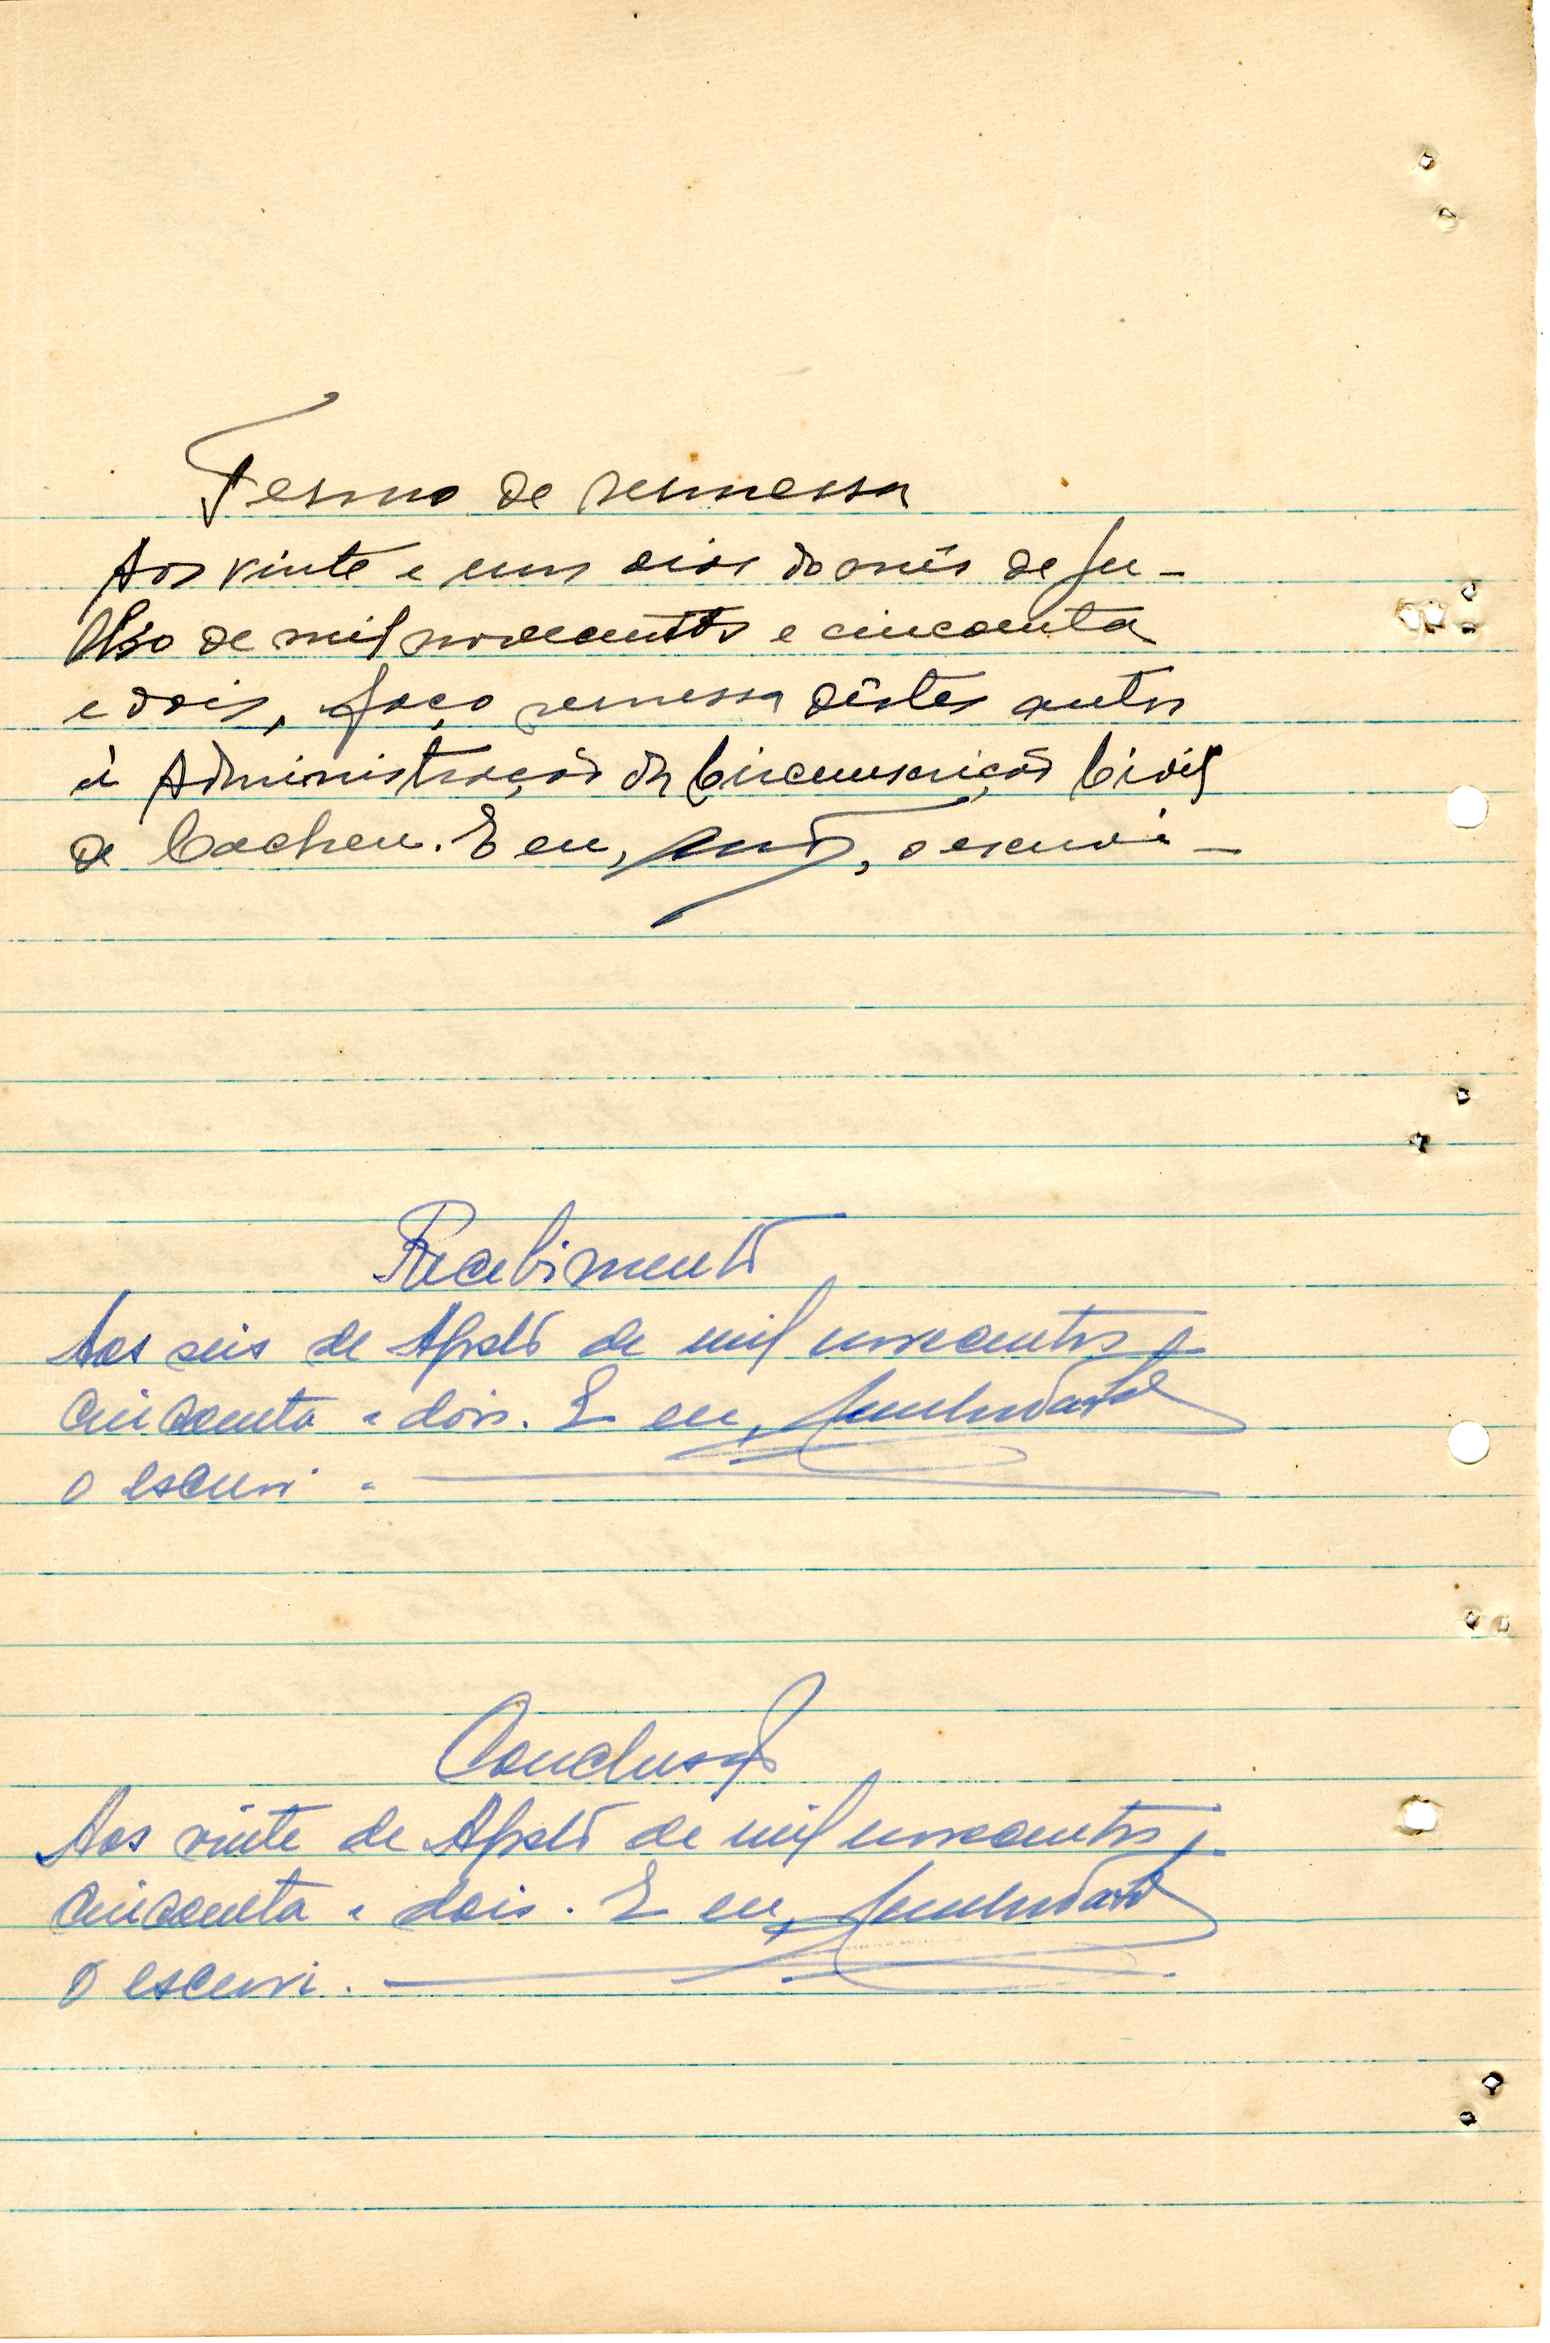 Termo de remessa
Aos vinte e um dias do mês de Ju-
lho de mil novecentos e cincoenta
e dois, faço remessa dêstes autos
à Administração da Circunscrição Civil
de Cacheu. E eu, , o escrevi -
Recebimento
Aos seis de Agosto de mil novecentos e
cincoenta e dois. E eu,
o escrevi.
Conclusão
Aos vinte de Agosto de mil novecentos e
cincoenta e dois. E eu,
o escrevi.